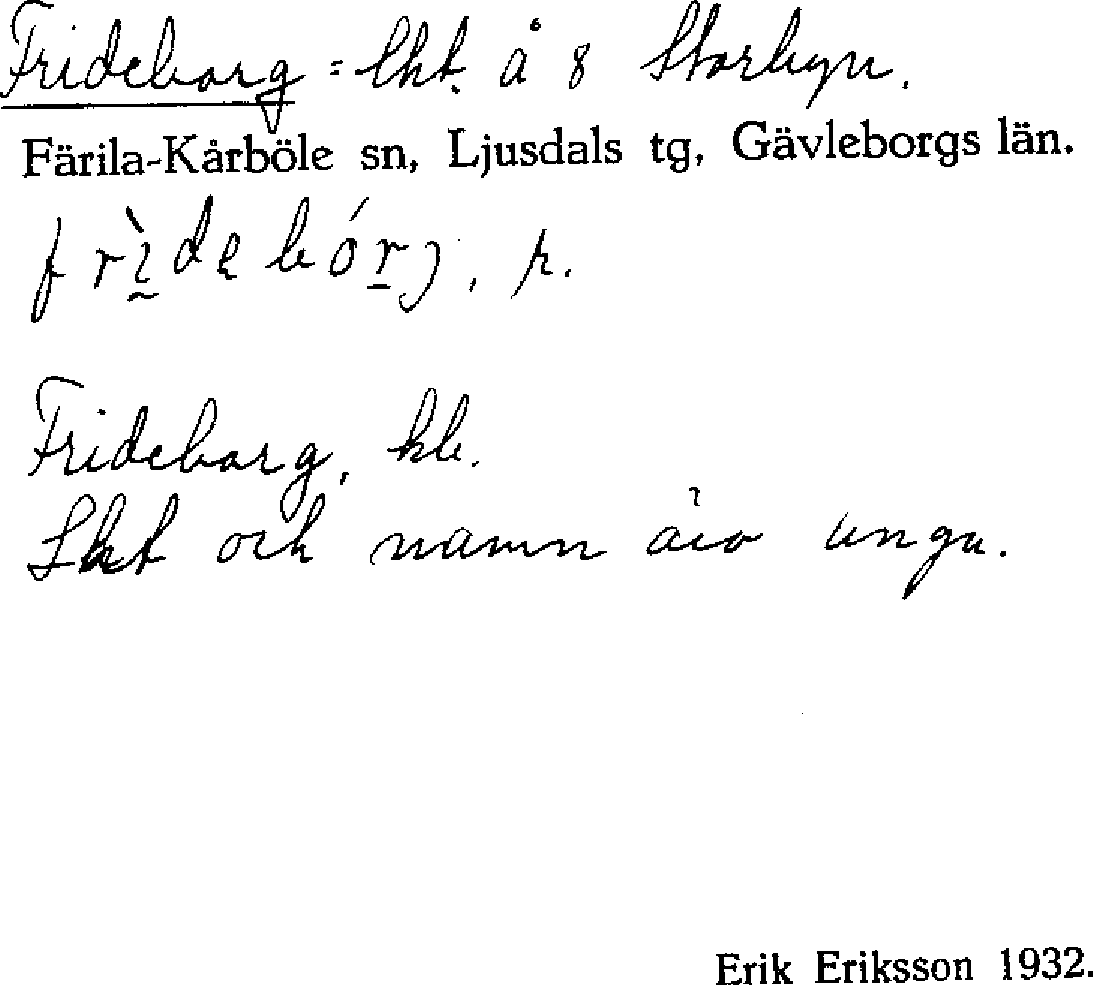 Frideborg = Lht. å 8 Storbyn.
Färila-Kårböle sn, Ljusdals tg, Gävleborgs län.
Frideborg, hb.
Lht och namn äro unga.
Erik Eriksson 1932.